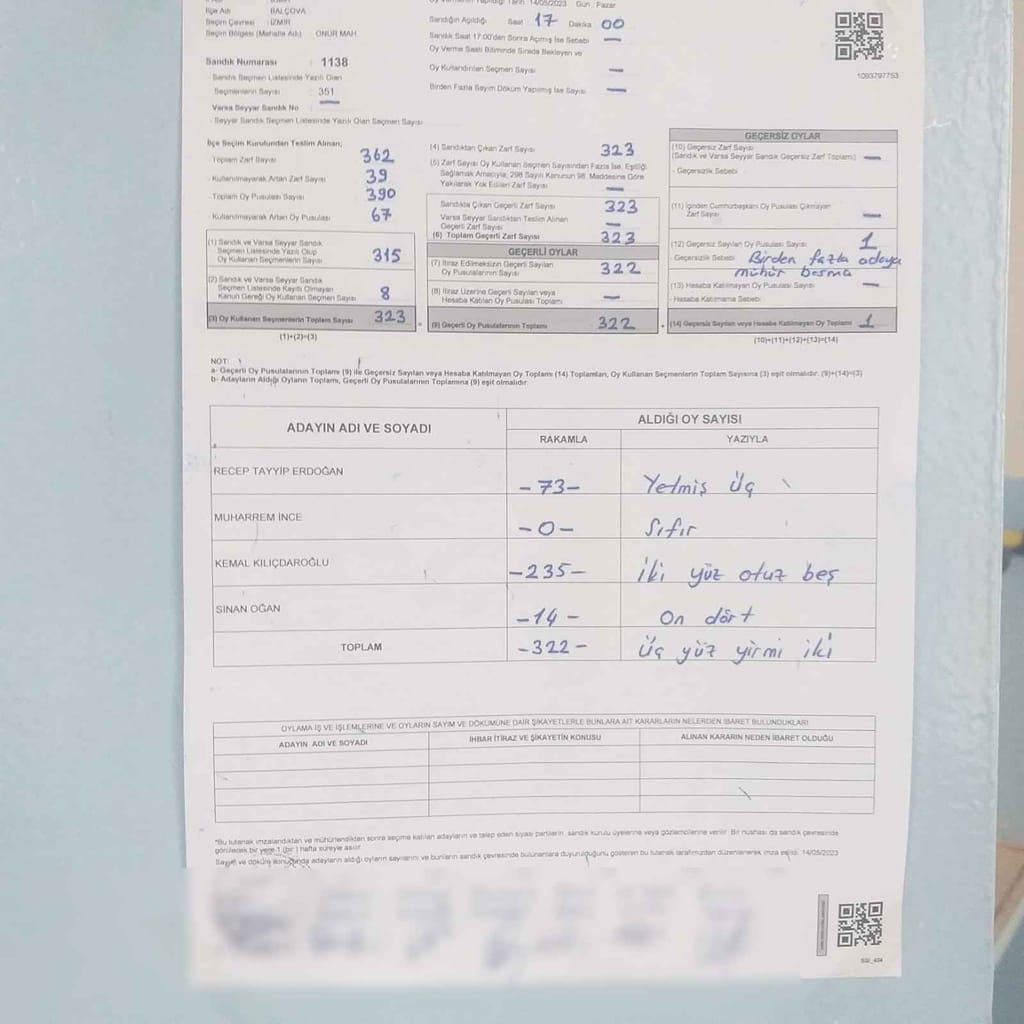 İlçe Adı BALÇOVA
Seçim Çevresi İZMİR
Seçim Bölgesi (Mahalle Adı) ONUR MAH
Sandık Numarası 1138
Sandık Seçmen Listesinde Yazılı Olan
Seçmenlerin Sayısı 351
Varsa Seyyar Sandık No —
Seyyar Sandık Listesinde Yazılı Olan Seçmen Sayısı
14/05/2023 Gün : Pazar
Sandığın Açıldığı Saat : 17 Dakika 00
Sandık Saat 17:00'den Sonra Açılmış İse Sebebi —
Oy Verme Saati Bitiminde Sırada Bekleyen ve
Oy Kullandırılan Seçmen Sayısı —
Birden Fazla Sayım Döküm Yapılmış İse Sayısı —
1093797753
İlçe Seçim Kurulundan Teslim Alınan;
Toplam Zarf Sayısı 362
Kullanılmayarak Artan Zarf Sayısı 39
Toplam Oy Pusulası Sayısı 390
Kullanılmayarak Artan Oy Pusulası 67
(1) Sandık ve Varsa Seyyar Sandık
Seçmen Listesinde Yazılı Olup
Oy Kullanan Seçmenlerin Sayısı 315
(2) Sandık ve Varsa Seyyar Sandık
Seçmen Listesinde Kaydı Olmayan
Kanun Gereği Oy Kullanan Seçmen Sayısı 8
(3) Oy Kullanan Seçmenlerin Toplam Sayısı 323
(1)+(2)=(3)
(4) Sandıktan Çıkan Zarf Sayısı 323
(5) Zarf Sayısı Oy Kullanan Seçmen Sayısından Fazla İse, Eşitliği
Sağlamak Amacıyla, 298 Sayılı Kanunun 98. Maddesine Göre
Yakılarak Yok Edilen Zarf Sayısı —
Sandıkta Çıkan Geçerli Zarf Sayısı 323
Varsa Seyyar Sandıktan Teslim Alınan
Geçerli Zarf Sayısı —
(6) Toplam Geçerli Zarf Sayısı 323
GEÇERLİ OYLAR
(7) İtiraz Edilmeksizin Geçerli Sayılan
Oy Pusulalarının Sayısı 322
(8) İtiraz Üzerine Geçerli Sayılan veya
Hesaba Katılan Oy Pusulası Toplamı —
= (9) Geçerli Oy Pusulalarının Toplamı 322
GEÇERSİZ OYLAR
(10) Geçersiz Zarf Sayısı
(Sandık ve Varsa Seyyar Sandık Geçersiz Zarf Toplamı) —
- Geçersizlik Sebebi
(11) İçinden Cumhurbaşkanı Oy Pusulası Çıkmayan
Zarf Sayısı —
(12) Geçersiz Sayılan Oy Pusulası Sayısı 1
- Geçersizlik Sebebi Birden fazla adaya
mühür basma
(13) Hesaba Katılmayan Oy Pusulası Sayısı —
- Hesaba Katılmama Sebebi
+ (14) Geçersiz Sayılan veya Hesaba Katılmayan Oy Toplamı 1
(10)+(11)+(12)+(13)=(14)
NOT:
a- Geçerli Oy Pusulalarının Toplamı (9) ile Geçersiz Sayılan veya Hesaba Katılmayan Oy Toplamı (14) Toplamları, Oy Kullanan Seçmenlerin Toplam Sayısına (3) eşit olmalıdır. (9)+(14)=(3)
b- Adayların Aldığı Oyların Toplamı, Geçerli Oy Pusulalarının Toplamına (9) eşit olmalıdır.
ADAYIN ADI VE SOYADI ALDIĞI OY SAYISI
RAKAMLA YAZIYLA
RECEP TAYYİP ERDOĞAN -73- Yetmiş üç
MUHARREM İNCE -0- Sıfır
KEMAL KILIÇDAROĞLU -235- iki yüz otuz beş
SİNAN OĞAN -14- On dört
TOPLAM -322- üç yüz yirmi iki
OYLAMA İŞ VE İŞLEMLERİNE VE OYLARIN SAYIM VE DÖKÜMÜNE DAİR ŞİKAYETLERLE BUNLARA AİT KARARLARIN NELERDEN İBARET BULUNDUKLARI
ADAYIN ADI VE SOYADI İHBAR İTİRAZ VE ŞİKAYETİN KONUSU ALINAN KARARIN NEDEN İBARET OLDUĞU
*Bu tutanak imzalandıktan ve mühürlendikten sonra seçime katılan adayların ve talep eden siyasi partilerin sandık kurulu üyelerine veya gözlemcilerine verilir. Bir nüshası da sandık çevresinde
görülecek bir yere 1 (bir ) hafta süreyle asılır.
Sayım ve döküm sonuçunda adayların aldığı oyların sayılarını ve bunların sandık çevresinde bulunanlara duyurulduğunu gösteren bu tutanak tarafımızdan düzenlenerek imza edildi. 14/05/2023